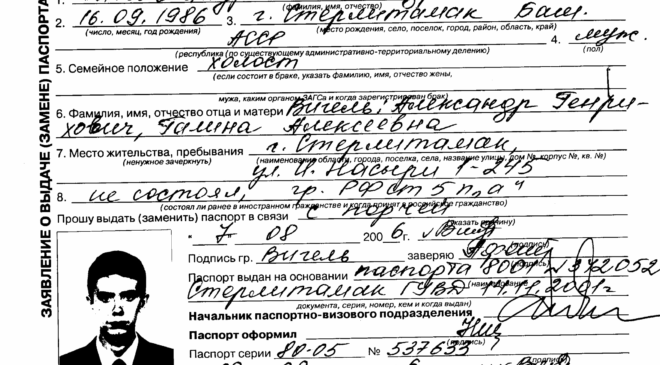 ЗАЯВЛЕНИЕ О ВЫДАЧЕ (ЗАМЕНЕ) ПАСПОРТА
1. (фамилия, имя, отчество)
2. 16.09.1986 3. г. Стерлитамак Баш.
(число, месяц, год рождения) (место рождения, село, поселок, город, район, область, край)
АССР 4. муж.
(республика (по существующему административно-территориальному делению) (пол)
5. Семейное положение холост
(если состоит в браке, указать фамилию, имя, отчество жены,
мужа, каким органом ЗАГСа и когда зарегистрирован брак)
6. Фамилия, имя, отчество отца и матери Вигель Александр Генри-
хович, Галина Алексеевна
7. Место жительства, пребывания г. Стерлитамак,
(ненужное зачеркнуть) (наименование области, города, поселка, села, название улицы, дом №, корпус №, кв. №)
ул. И. Насыри 1-245
8. не состоял, гр. РФ ст 5 п "а"
(состоял ли ранее в иностранном гражданстве и когда принят в российское гражданство)
Прошу выдать (заменить) паспорт в связи с порчей
(указать причину)
" 7 08 2006 г.
(подпись)
Подпись гр. Вигель заверяю
(подпись)
Паспорт выдан на основании паспорта 8001 № 372052
(наименование
Стерлитамак ГУВД 2001г
документа, серия, номер, кем и когда выдан)
Начальник паспортно-визового подразделения
Паспорт оформил
(подпись)
Паспорт серии 80-05 № 537633
(подпись)